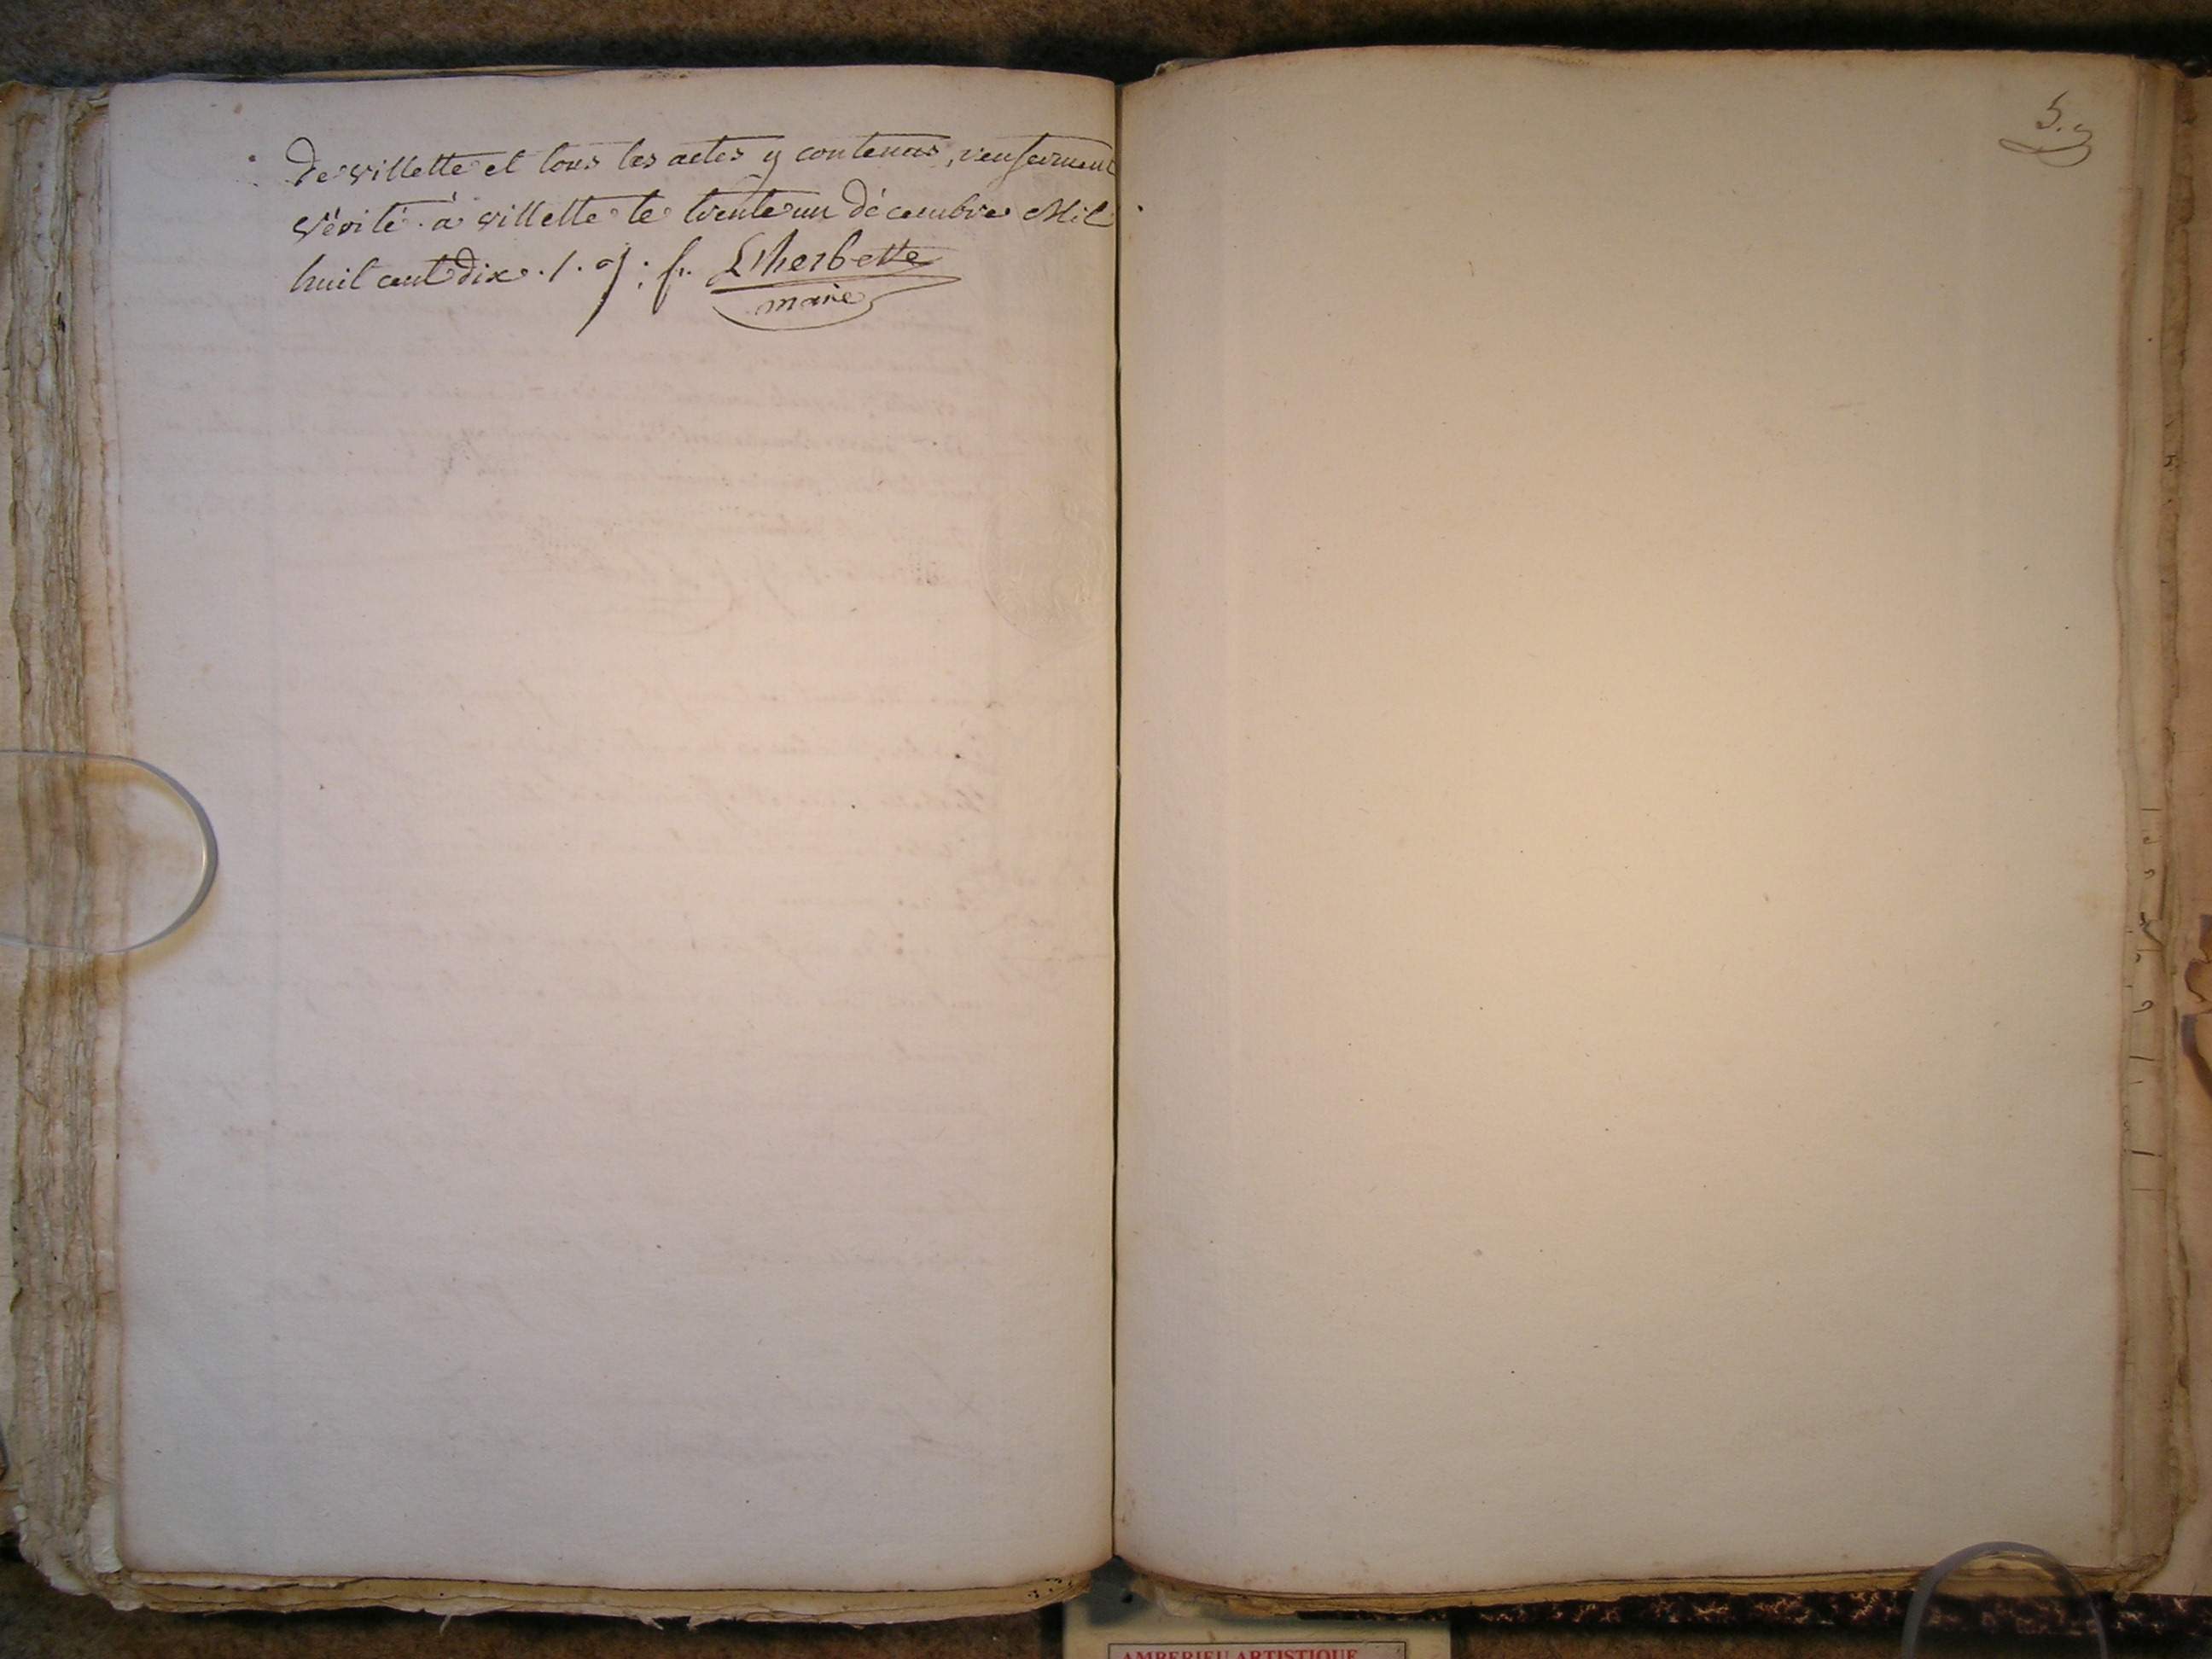 De villette et tous les actes y contenus, renferment
vérité. à villette le trente un décembre Mil
huit cent dix. J. f. Lherbette
maire
5.
AMBERIEU ARTISTIQUE